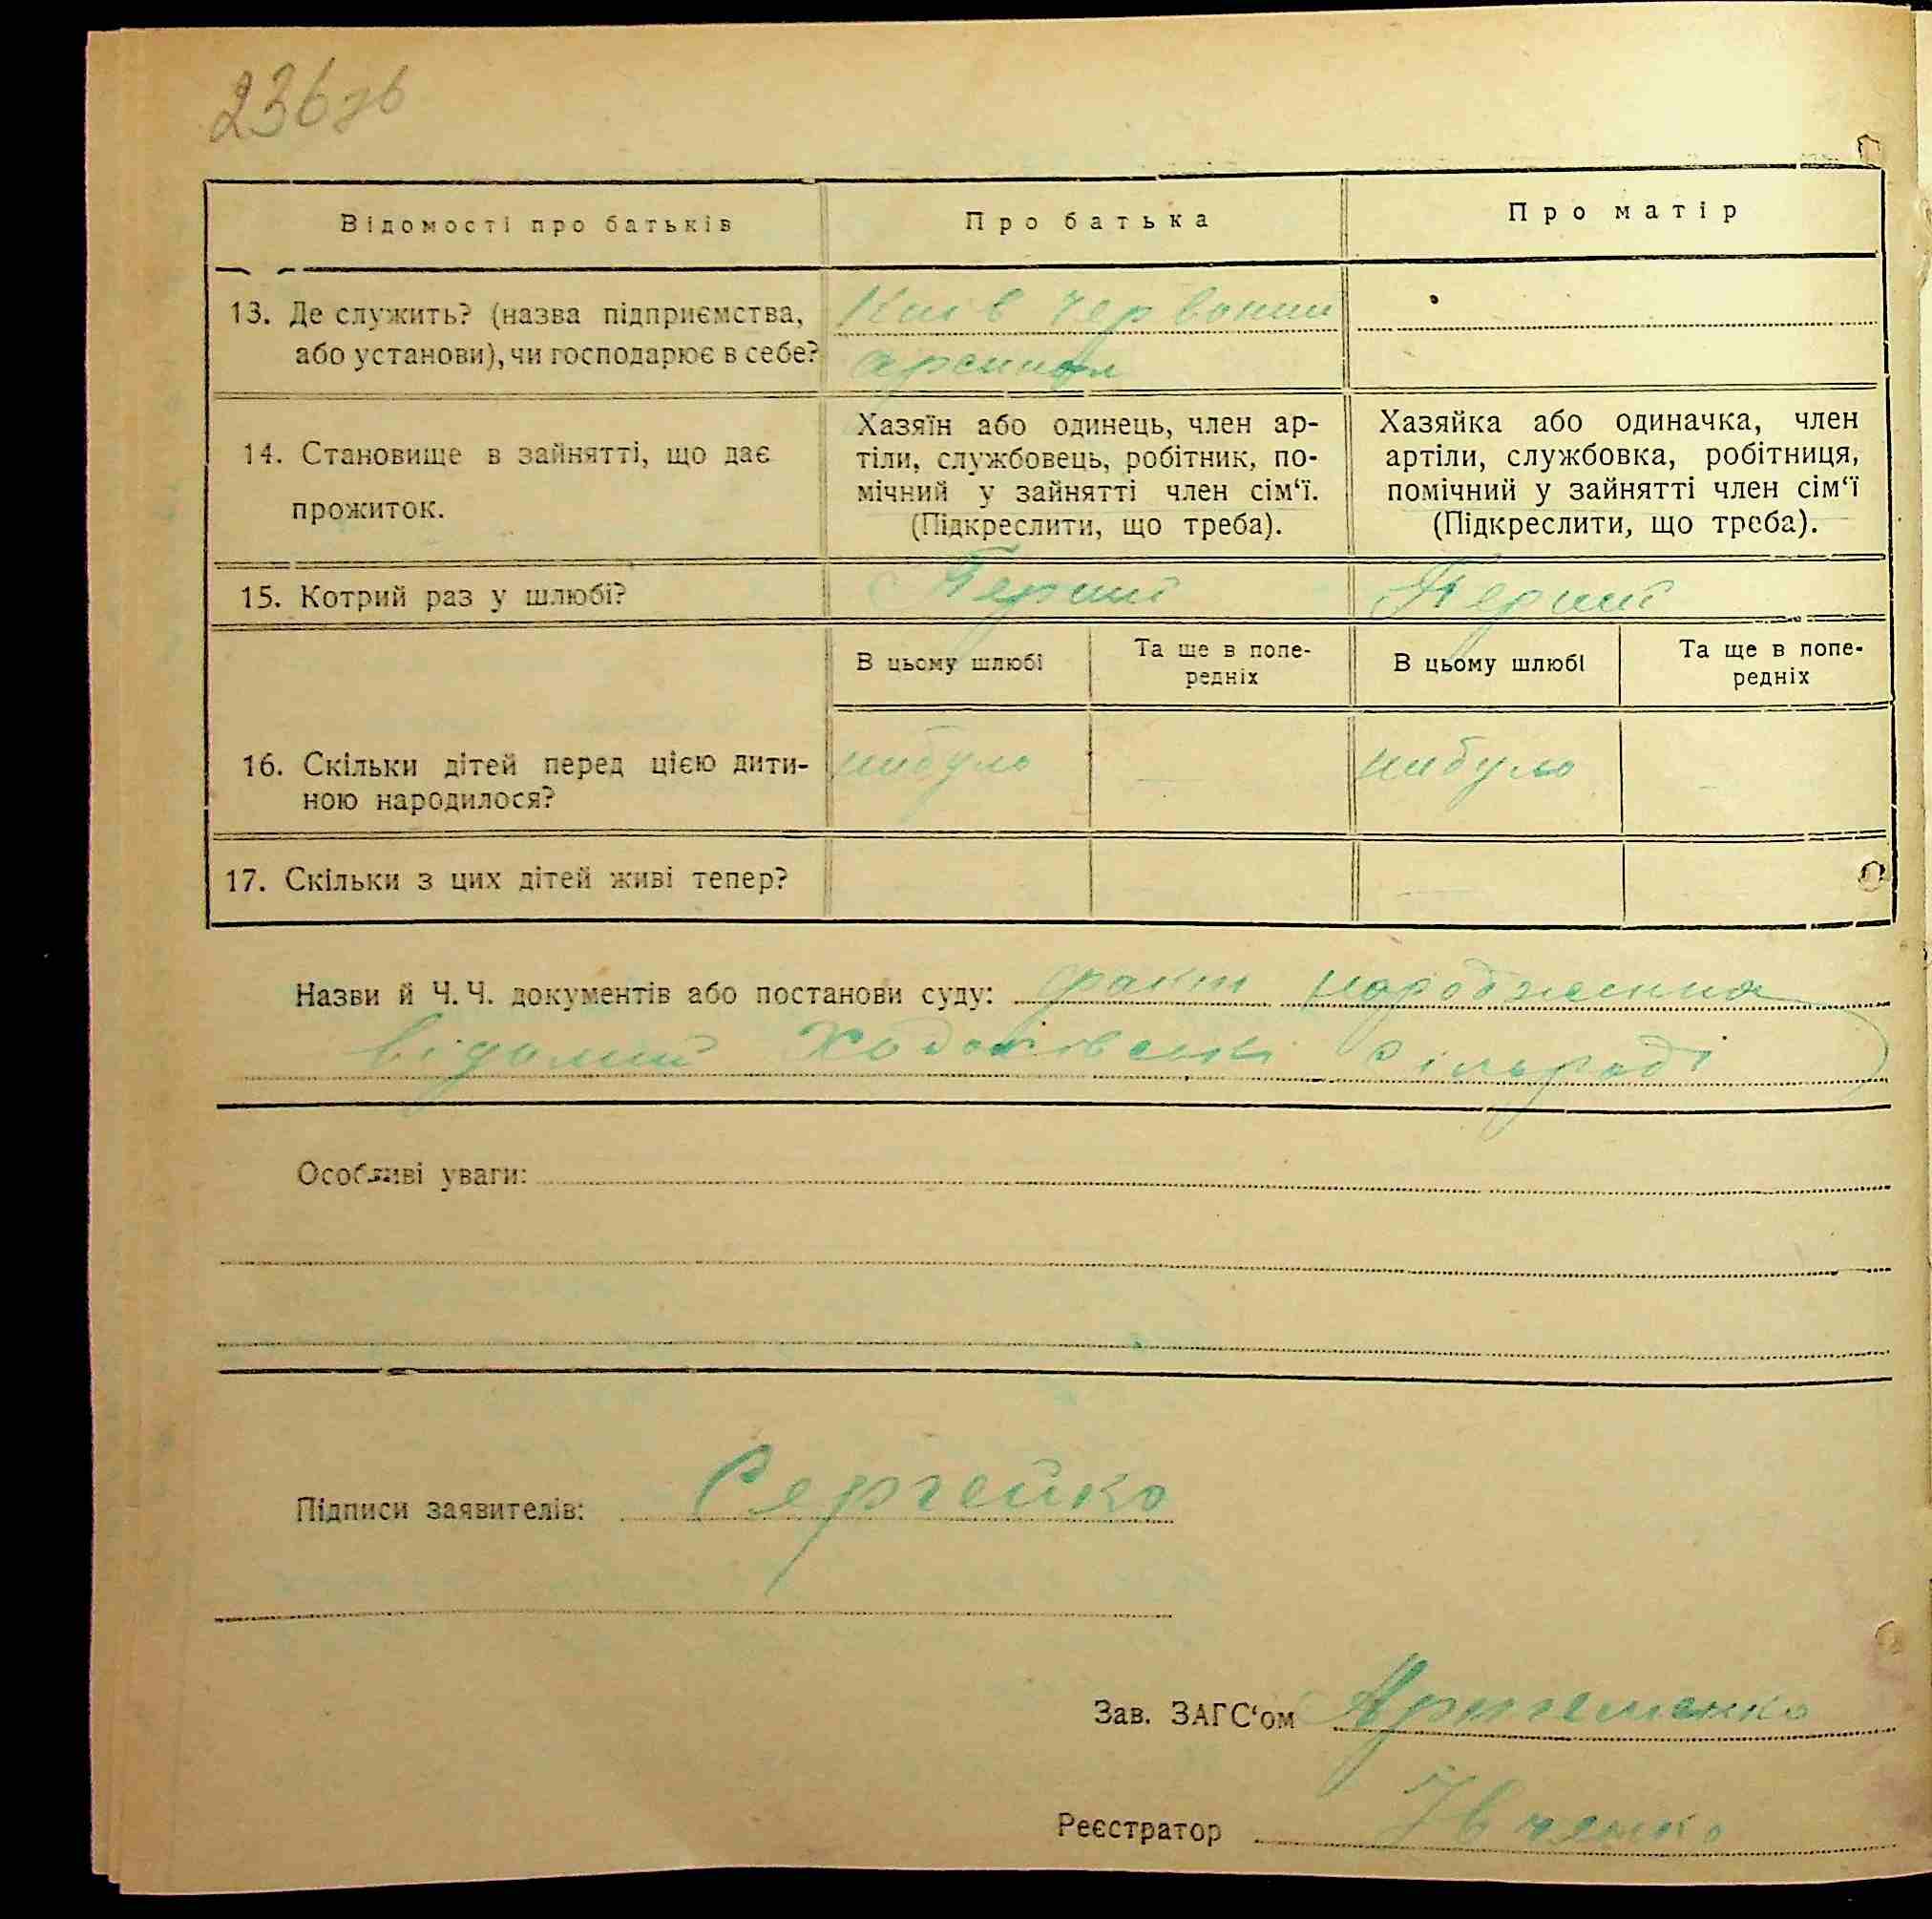 236 зв
Відомості про батьків Про батька Про матір
13. Де служить? (назва підприємства, Київ Червоний
або установи), чи господарює в себе? арсинал
14. Становище в зайнятті, що дає
прожиток.
Хазяїн або одинець, член ар-
тіли, службовець, робітник, по-
мічний у зайнятті член сім‘ї.
(Підкреслити, що треба).
Хазяйка або одиначка, член
артіли, службовка, робітниця,
помічний у зайнятті член сім‘ї
(Підкреслити, що треба).
15. Котрий раз у шлюбі? Перший Перший
В цьому шлюбі Та ще в попе-
редніх В цьому шлюбі Та ще в попе-
редніх
16. Скільки дітей перед цією дити-
ною народилося? нибуло нибуло
17. Скільки з цих дітей живі тепер?
Назви й Ч. Ч. документів або постанови суду: факт народження
відомий сільраді
Особливі уваги:
Підписи заявителів: Сергейко
Зав. ЗАГС‘ом Артеменко
Реєстратор Івченко